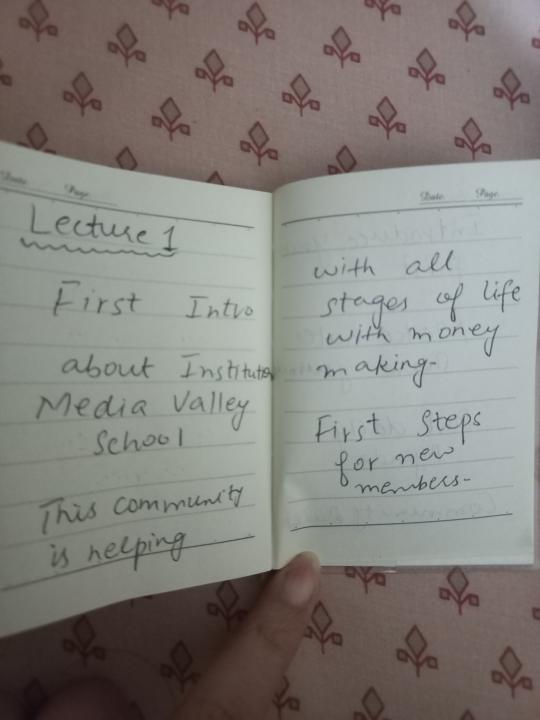 Date. Page.
Lecture 1
First Intro
about Institute
Media Valley
School
This community
is helping
Date. Page.
with all
stages of life
with money
making-
First Steps
for new
members-